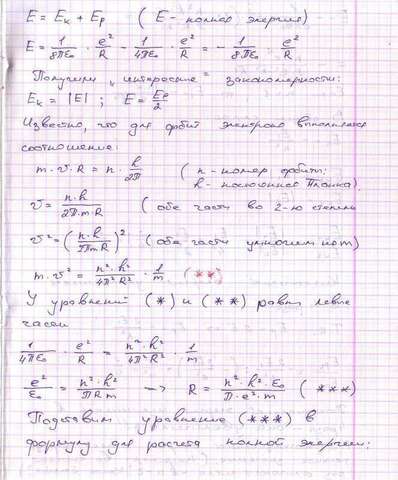 E = Eк + Ep ( E - полная энергия)
E = 1/8πε₀ · e²/R - 1/4πε₀ · e²/R = - 1/8πε₀ · e²/R
Получили "интересные" закономерности:
Eк = |E| ; E = Ep/2
Известно, что для орбит электрона выполняется
соотношение:
m · v · R = n · h/2π ( n - номер орбиты;
h - постоянная Планка)
v = n·h/2π m R ( обе части во 2-ю степень
v² = (n·h/2πm R)² ( обе части умножим на m)
m · v² = n²·h²/4π² R² · 1/m (**)
У уравнений (*) и (**) равны левые
части
1/4πε₀ · e²/R = n²·h²/4π²R² · 1/m
e²/ε₀ = n²·h²/πRm —> R = n²·h²·ε₀/π·e²·m (***)
Подставим уравнение (***) в
формулу для расчета полной энергии: